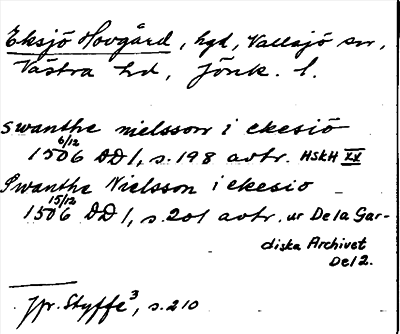 Eksjö Hovgård, hgd, Vallsjö sn,
Västra hd, Jönk. l.
swanthe nielsson i ekesiö
6/12
1506 DD1, s.198 avtr. HSKH XX
Swanthe Nielsson i ekesio
15/12
1506 DD1, s.201 avtr. ur De la Gar-
diska Archivet
Del 2.
Jfr. Styffe3, s.210